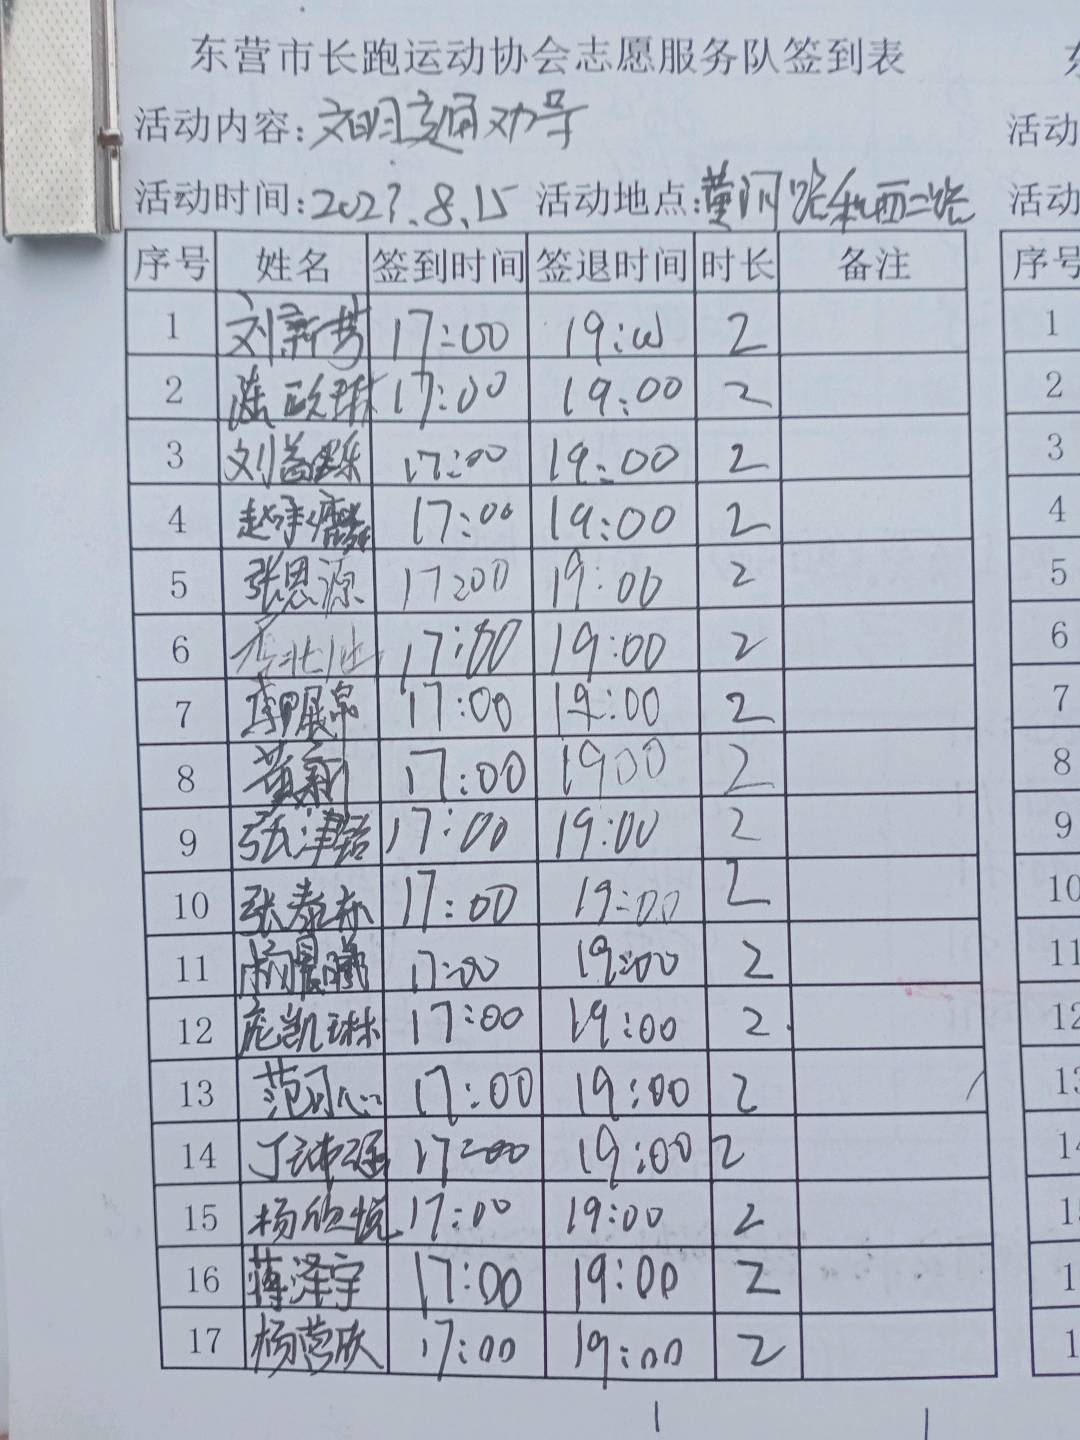 东营市长跑运动协会志愿服务队签到表
活动内容:文明交通劝导
活动时间:2023.8.15 活动地点:黄河路和西二路
序号 姓名 签到时间 签退时间 时长 备注
1 刘新芳 17:00 19:00 2
2 17:00 19:00 2
3 刘益铄 17:00 19:00 2
4 赵承麟 17:00 19:00 2
5 张恩源 17:00 19:00 2
6 17:00 19:00 2
7 李展泉 17:00 19:00 2
8 黄新 17:00 1900 2
9 张津铭 17:00 19:00 2
10 张泰赫 17:00 19:00 2
11 杨晨曦 17:00 19:00 2
12 庞凯琳 17:00 19:00 2
13 范可心 17:00 19:00 2
14 丁 17:00 19:00 2
15 杨欣悦 17:00 19:00 2
16 蒋泽宇 17:00 19:00 2
17 杨营欣 17:00 19:00 2
活动
活动
序号
1
2
3
4
5
6
7
8
9
10
11
12